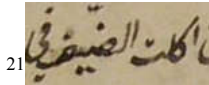 21 اكلت الضيف في